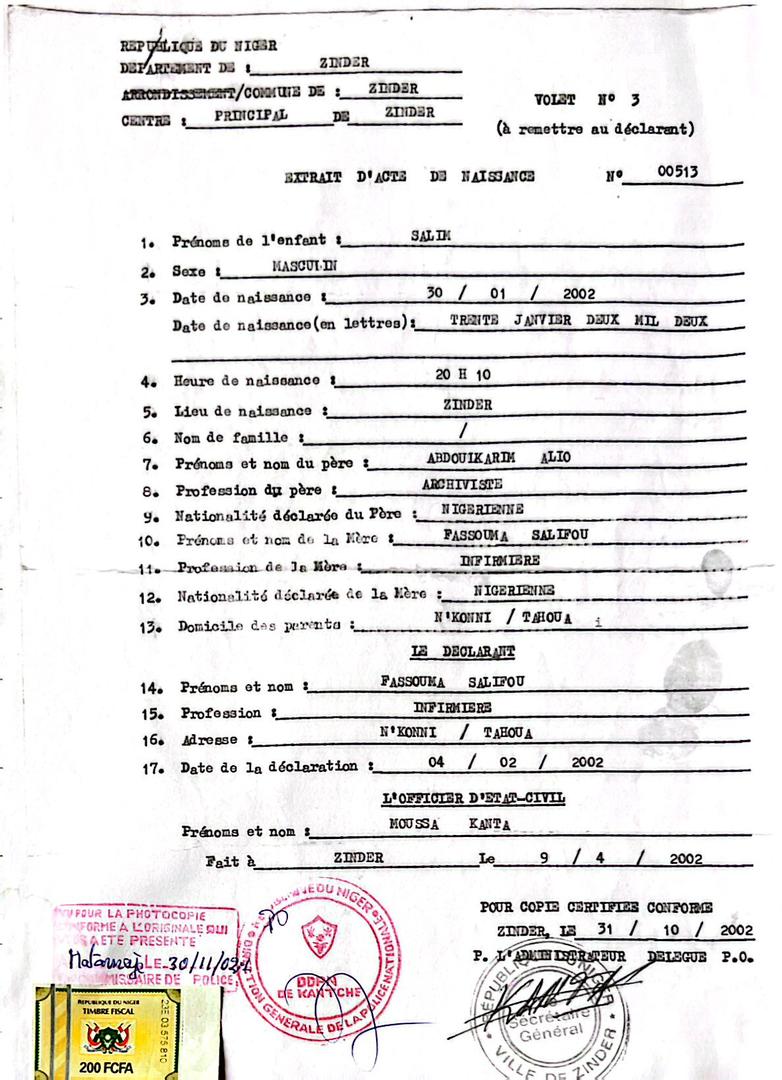 REPUBLIQUE DU NIGER
DEPARTEMENT DE : ZINDER
ARRONDISSEMENT/COMMUNE DE : ZINDER
CENTRE : PRINCIPAL DE ZINDER
VOLET N° 3
(à remettre au déclarant)
EXTRAIT D'ACTE DE NAISSANCE N° 00513
1. Prénoms de l'enfant : SALIM
2. Sexe : MASCULIN
3. Date de naissance : 30 / 01 / 2002
Date de naissance(en lettres): TRENTE JANVIER DEUX MIL DEUX
4. Heure de naissance : 20 H 10
5. Lieu de naissance : ZINDER
6. Nom de famille : /
7. Prénoms et nom du père : ABDOUIKARIM ALIO
8. Profession du père : ARCHIVISTE
9. Nationalité déclarée du Père : NIGERIENNE
10. Prénoms et nom de la Mère : FASSOUMA SALIFOU
11. Profession de la Mère : INFIRMIERE
12. Nationalité déclarée de la Mère : NIGERIENNE
13. Domicile des parents : N'KONNI / TAHOUA
LE DECLARANT
14. Prénoms et nom : FASSOUMA SALIFOU
15. Profession : INFIRMIERE
16. Adresse : N'KONNI / TAHOUA
17. Date de la déclaration : 04 / 02 / 2002
L'OFFICIER D'ETAT-CIVIL
Prénoms et nom : MOUSSA KANTA
Fait à ZINDER Le 9 / 4 / 2002
POUR COPIE CERTIFIEE CONFORME
ZINDER, LE 31 / 10 / 2002
P. L'ADMINISTRATEUR DELEGUE P.O.
VU POUR LA PHOTOCOPIE
CONFORME A L'ORIGINALE QUI
A ETE PRESENTE
LE 30/11/02
COMMISSAIRE DE POLICE
REPUBLIQUE DU NIGER
DIRECTION GENERALE DE LA POLICE NATIONALE
DDPN
DE KANTCHE
REPUBLIQUE DU NIGER
Secrétaire
Général
VILLE DE ZINDER
REPUBLIQUE DU NIGER
TIMBRE FISCAL
200 FCFA